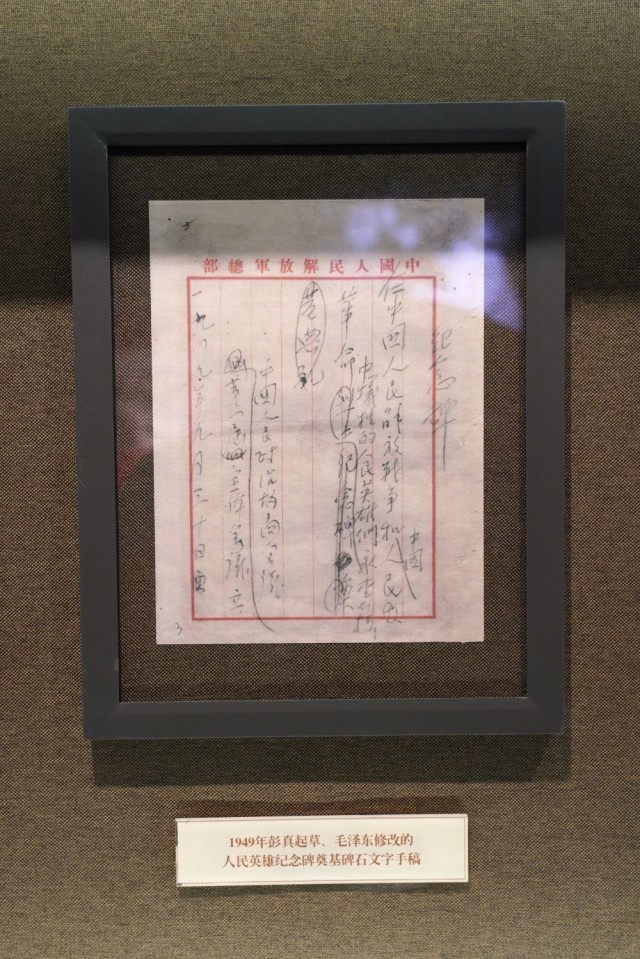 中國人民解放軍總部
紀念碑
在中國人民解放戰爭和人民
中國
犧牲的人民英雄們永垂
革命
紀念碑
奠基
中國人民政治協商會議
全體會議立
一九四九年九月三十日
3
1949年彭真起草、毛泽东修改的
人民英雄纪念碑奠基碑石文字手稿